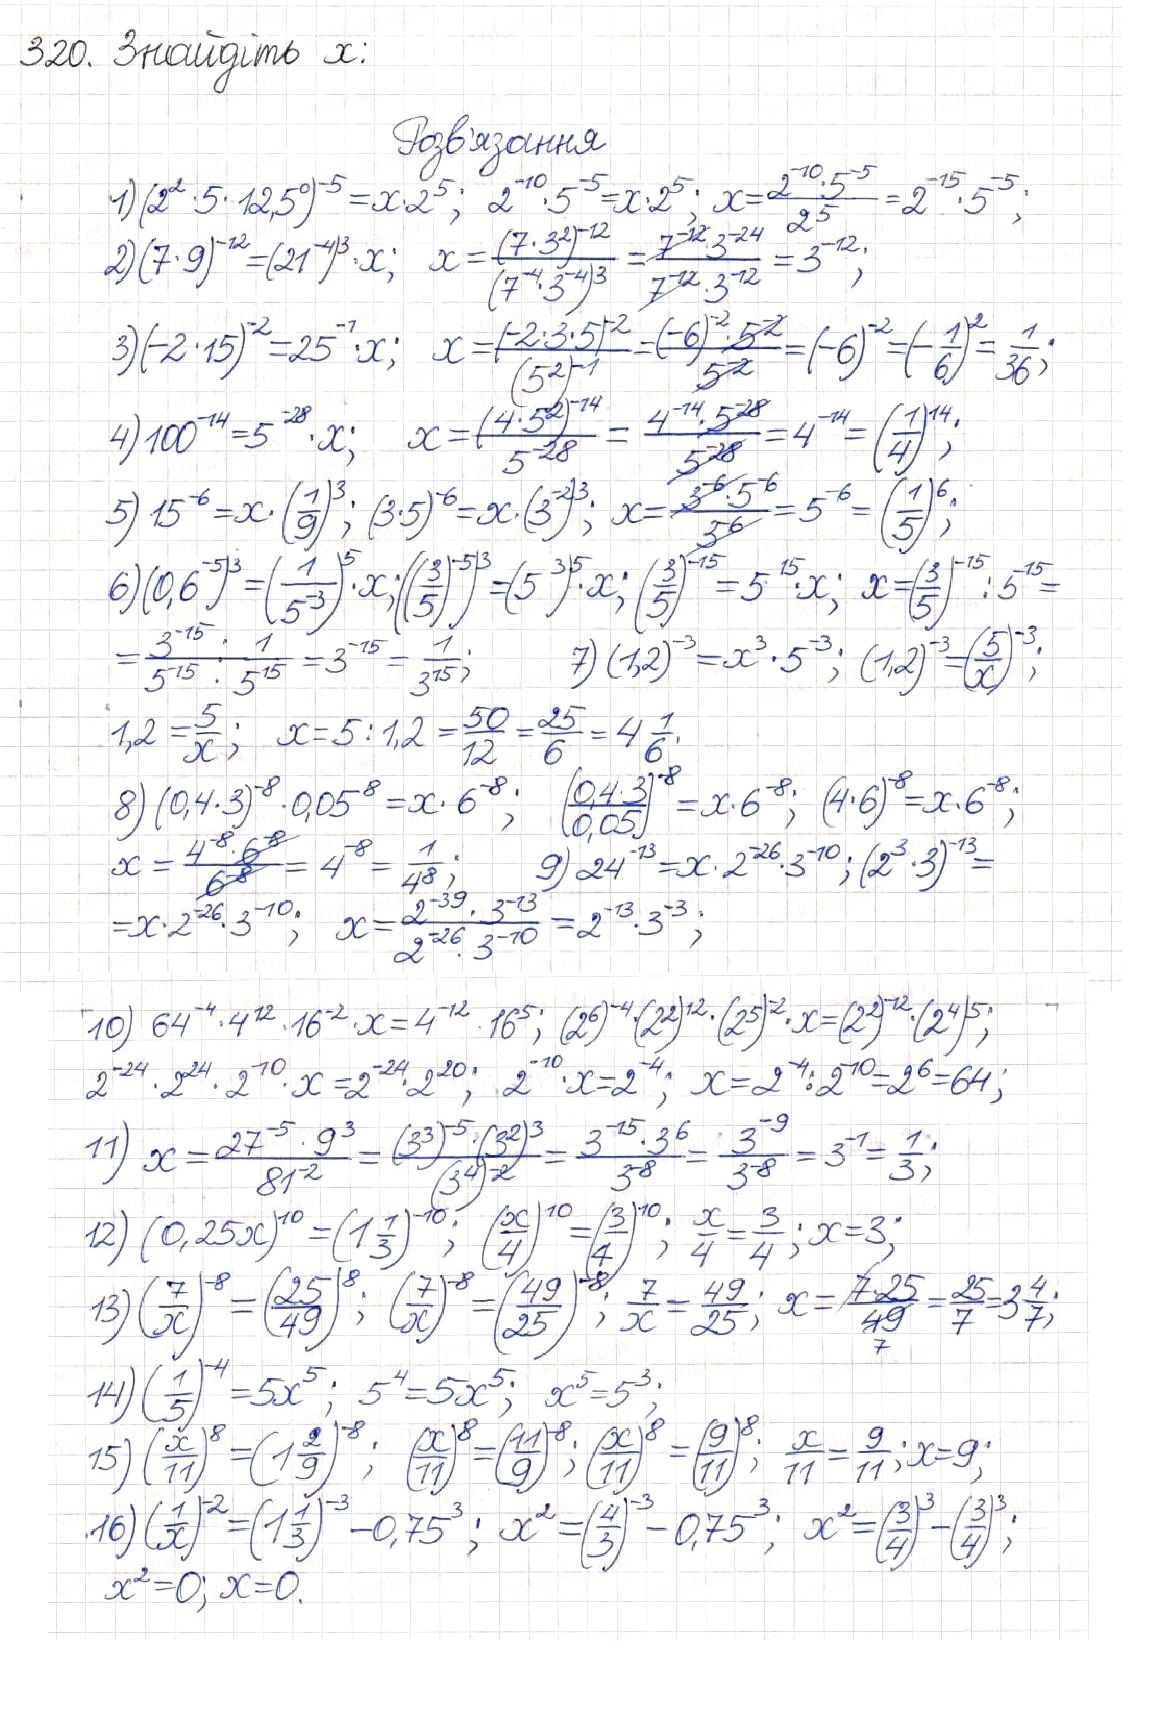 320. Знайдіть x:
Розв'язання
1) (2² · 5 · 12,5⁰)⁻⁵ = x · 2⁵; 2⁻¹⁰ · 5⁻⁵ = x · 2⁵; x = (2⁻¹⁰ · 5⁻⁵)/2⁵ = 2⁻¹⁵ · 5⁻⁵;
2) (7 · 9)⁻¹² = (21⁻⁴)³ · x; x = (7 · 3²)⁻¹²/(7⁻⁴ · 3⁻⁴)³ = (7⁻¹² · 3⁻²⁴)/(7⁻¹² · 3⁻¹²) = 3⁻¹²;
3) (−2 · 15)⁻² = 25⁻¹ · x; x = (−2 · 3 · 5)⁻²/(5²)⁻¹ = ((−6)⁻² · 5⁻²)/5⁻² = (−6)⁻² = (−1/6)² = 1/36;
4) 100⁻¹⁴ = 5⁻²⁸ · x; x = (4 · 5²)⁻¹⁴/5⁻²⁸ = (4⁻¹⁴ · 5⁻²⁸)/5⁻²⁸ = 4⁻¹⁴ = (1/4)¹⁴;
5) 15⁻⁶ = x · (1/9)³; (3 · 5)⁻⁶ = x · (3⁻²)³; x = (3⁻⁶ · 5⁻⁶)/3⁻⁶ = 5⁻⁶ = (1/5)⁶;
6) (0,6⁻⁵)³ = (1/5⁻³)⁵ · x; ((3/5)⁻⁵)³ = (5³)⁵ · x; (3/5)⁻¹⁵ = 5¹⁵ · x; x = (3/5)⁻¹⁵ : 5⁻¹⁵ =
= 3⁻¹⁵/5⁻¹⁵ : 1/5¹⁵ = 3⁻¹⁵ = 1/3¹⁵; 7) (1,2)⁻³ = x³ · 5⁻³; (1,2)⁻³ = (5/x)⁻³;
1,2 = 5/x; x = 5 : 1,2 = 50/12 = 25/6 = 4 1/6.
8) (0,4 · 3)⁻⁸ · 0,05⁸ = x · 6⁻⁸; (0,4 · 3/0,05)⁻⁸ = x · 6⁻⁸; (4 · 6)⁻⁸ = x · 6⁻⁸;
x = (4⁻⁸ · 6⁻⁸)/6⁻⁸ = 4⁻⁸ = 1/4⁸; 9) 24⁻¹³ = x · 2⁻²⁶ · 3⁻¹⁰; (2³ · 3)⁻¹³ =
= x · 2⁻²⁶ · 3⁻¹⁰; x = (2⁻³⁹ · 3⁻¹³)/(2⁻²⁶ · 3⁻¹⁰) = 2⁻¹³ · 3⁻³;
10) 64⁻⁴ · 4¹² · 16⁻² · x = 4⁻¹² · 16⁵; (2⁶)⁻⁴ · (2²)¹² · (2⁵)⁻² · x = (2²)⁻¹² · (2⁴)⁵;
2⁻²⁴ · 2²⁴ · 2⁻¹⁰ · x = 2⁻²⁴ · 2²⁰; 2⁻¹⁰ · x = 2⁻⁴; x = 2⁻⁴ : 2⁻¹⁰ = 2⁶ = 64;
11) x = (27⁻⁵ · 9³)/81⁻² = ((3³)⁻⁵ · (3²)³)/(3⁴)⁻² = (3⁻¹⁵ · 3⁶)/3⁻⁸ = 3⁻⁹/3⁻⁸ = 3⁻¹ = 1/3;
12) (0,25x)¹⁰ = (1 1/3)⁻¹⁰; (x/4)¹⁰ = (3/4)¹⁰; x/4 = 3/4; x = 3;
13) (7/x)⁻⁸ = (25/49)⁸; (7/x)⁻⁸ = (49/25)⁻⁸; 7/x = 49/25; x = (7 · 25)/49 7 = 25/7 = 3 4/7;
14) (1/5)⁻⁴ = 5x⁵; 5⁴ = 5x⁵; x⁵ = 5³;
15) (x/11)⁸ = (1 2/9)⁻⁸; (x/11)⁸ = (11/9)⁻⁸; (x/11)⁸ = (9/11)⁸; x/11 = 9/11; x = 9;
16) (1/x)⁻² = (1 1/3)⁻³ − 0,75³; x² = (4/3)⁻³ − 0,75³; x² = (3/4)³ − (3/4)³;
x² = 0; x = 0.